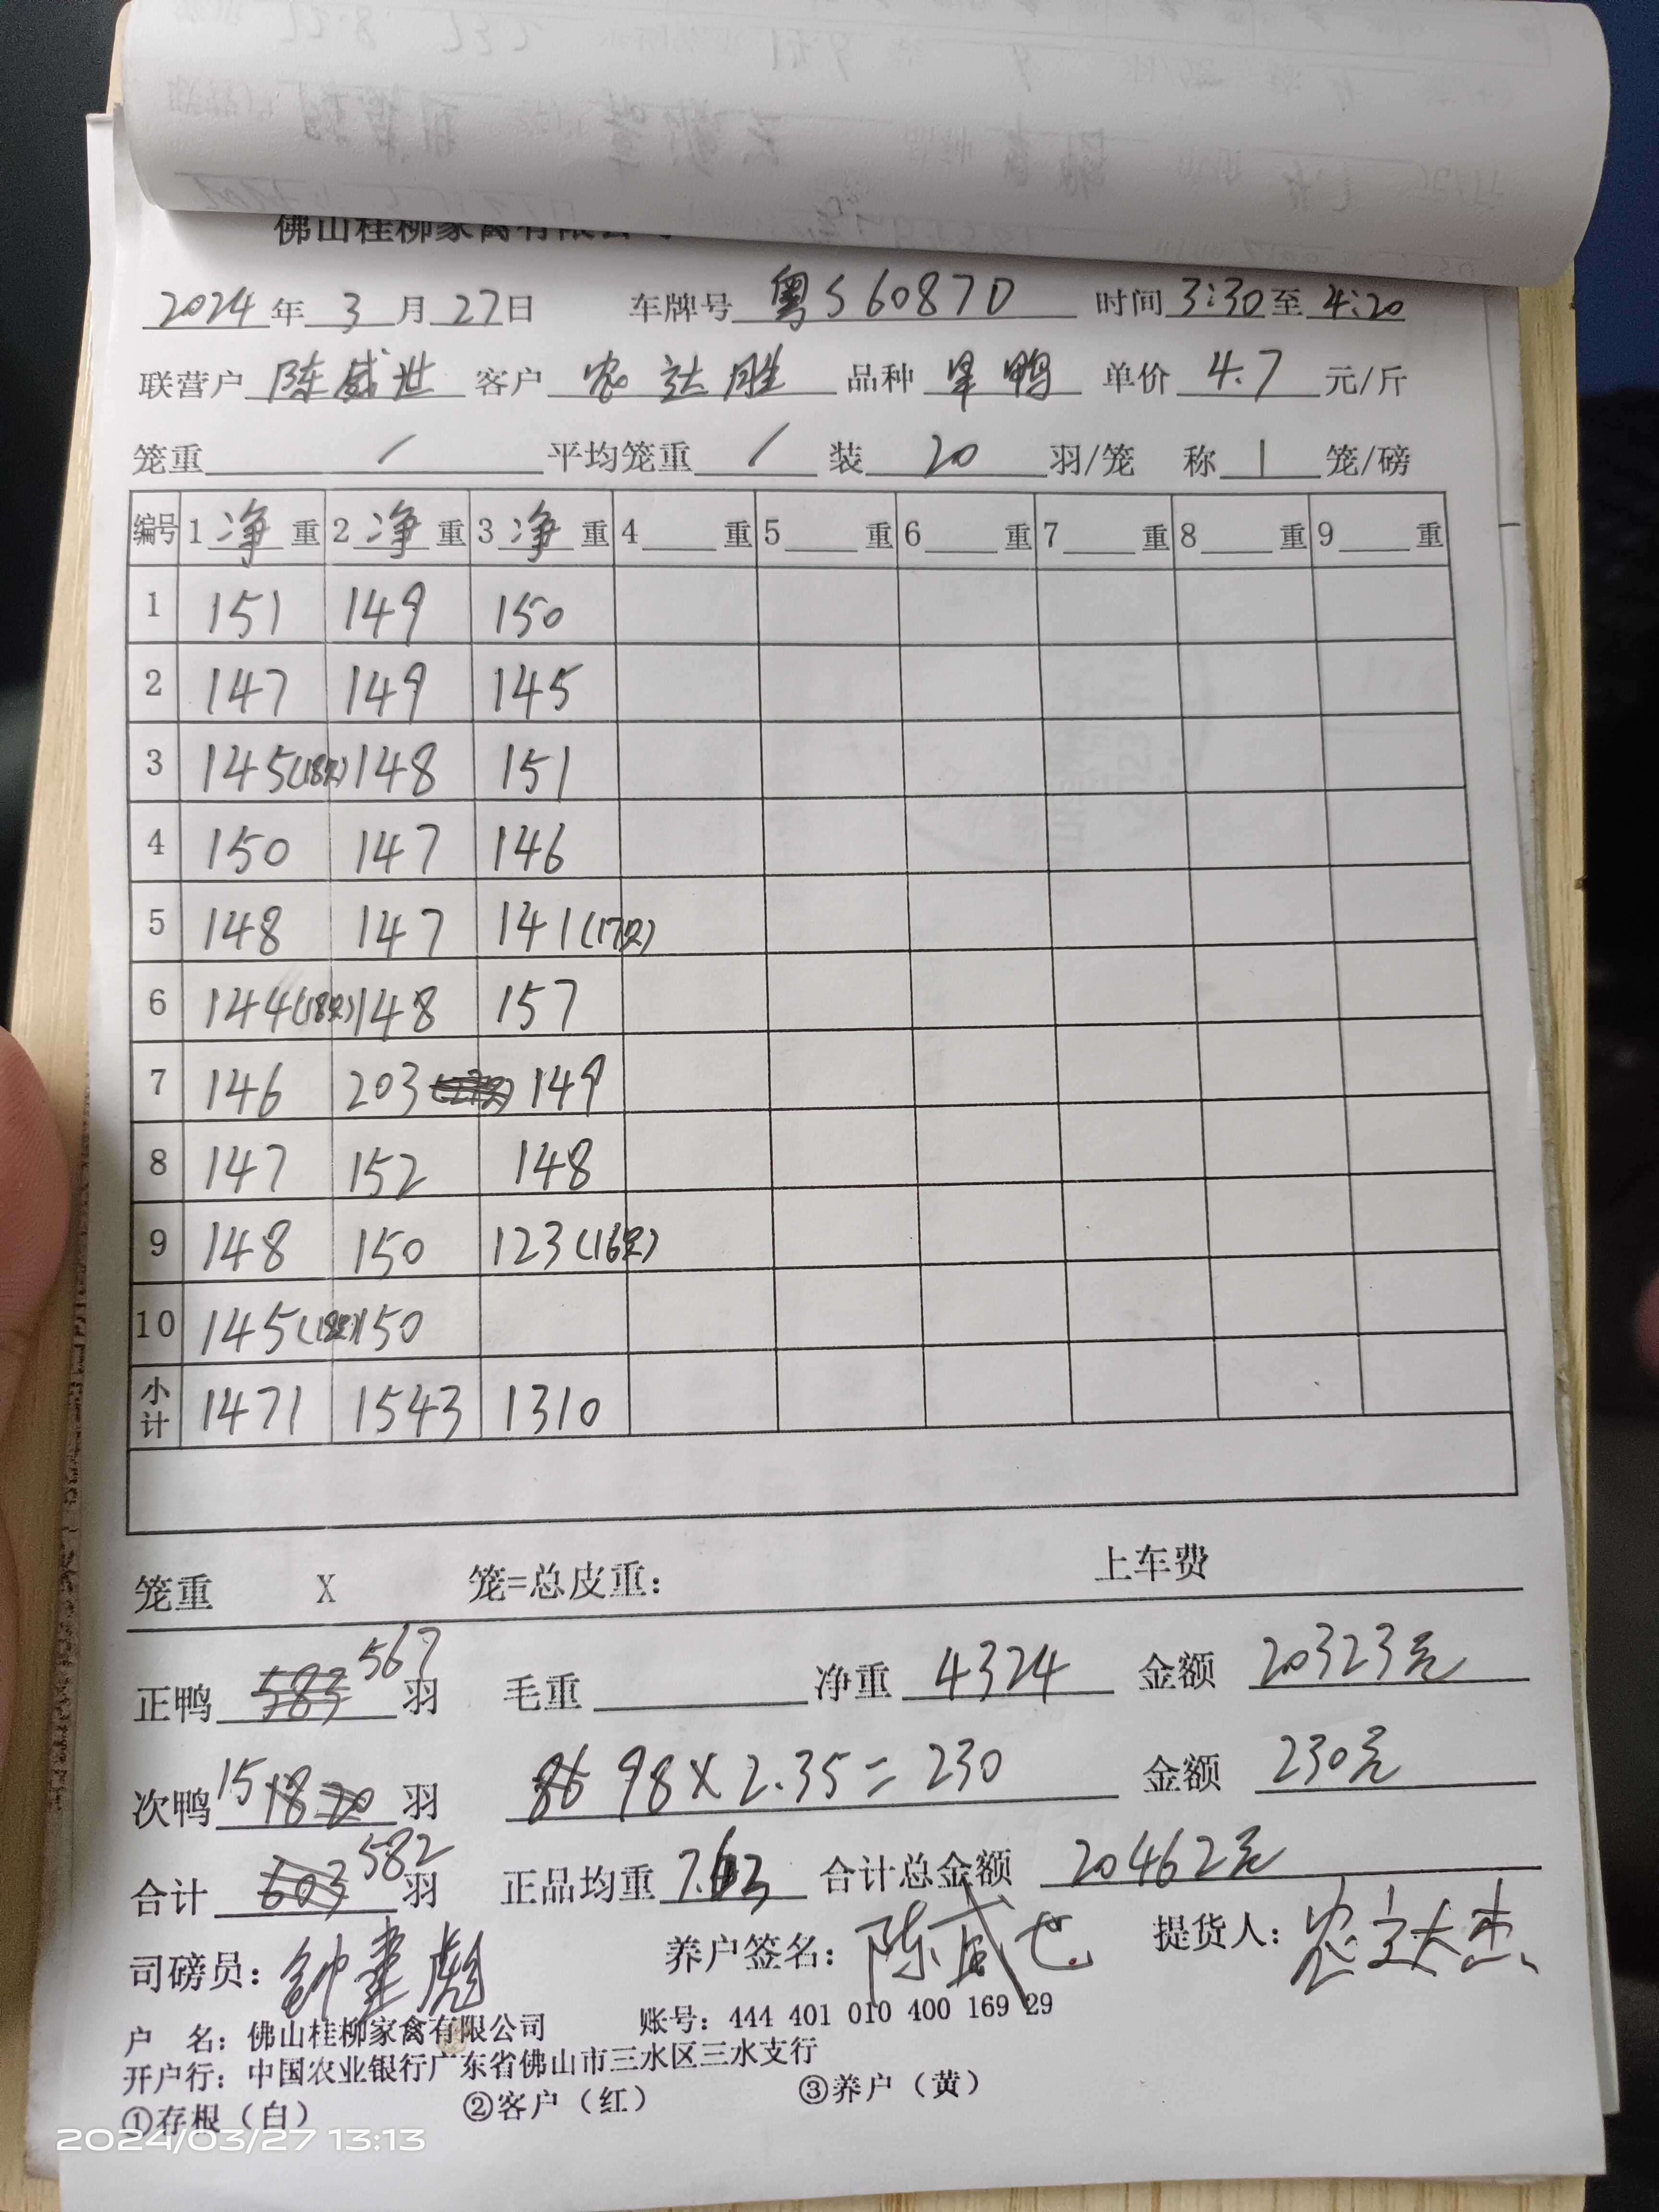 佛山桂柳家禽有限公司
2024年 3 月 27日 车牌号 粤S6087D 时间 3:30 至 4:20
联营户 陈威世 客户 农达胜 品种 单价 4.7 元/斤
笼重 / 平均笼重 / 装 20 羽/笼 称 1 笼/磅
编号 1 净 重 2 净 重 3 净 重 4 重 5 重 6 重 7 重 8 重 9 重
1 151 149 150
2 147 149 145
3 145(18只) 148 151
4 150 147 146
5 148 147 141(17只)
6 144(18只) 148 157
7 146 203 149
8 147 152 148
9 148 150 123(16只)
10 145(18只) 150
小计 1471 1543 1310
笼重 X 笼=总皮重: 上车费
正鸭 583 567 羽 毛重 净重 4324 金额 20323元
次鸭 15 18 20 羽 86 98×2.35=230 金额 230元
合计 603 582 羽 正品均重 7.63 合计总金额 20462元
司磅员: 钟建彪 养户签名: 陈威世 提货人:
户 名: 佛山桂柳家禽有限公司 账号: 444 401 010 400 169 29
开户行: 中国农业银行广东省佛山市三水区三水支行
①存根(白) ②客户(红) ③养户(黄)
2024/03/27 13:13